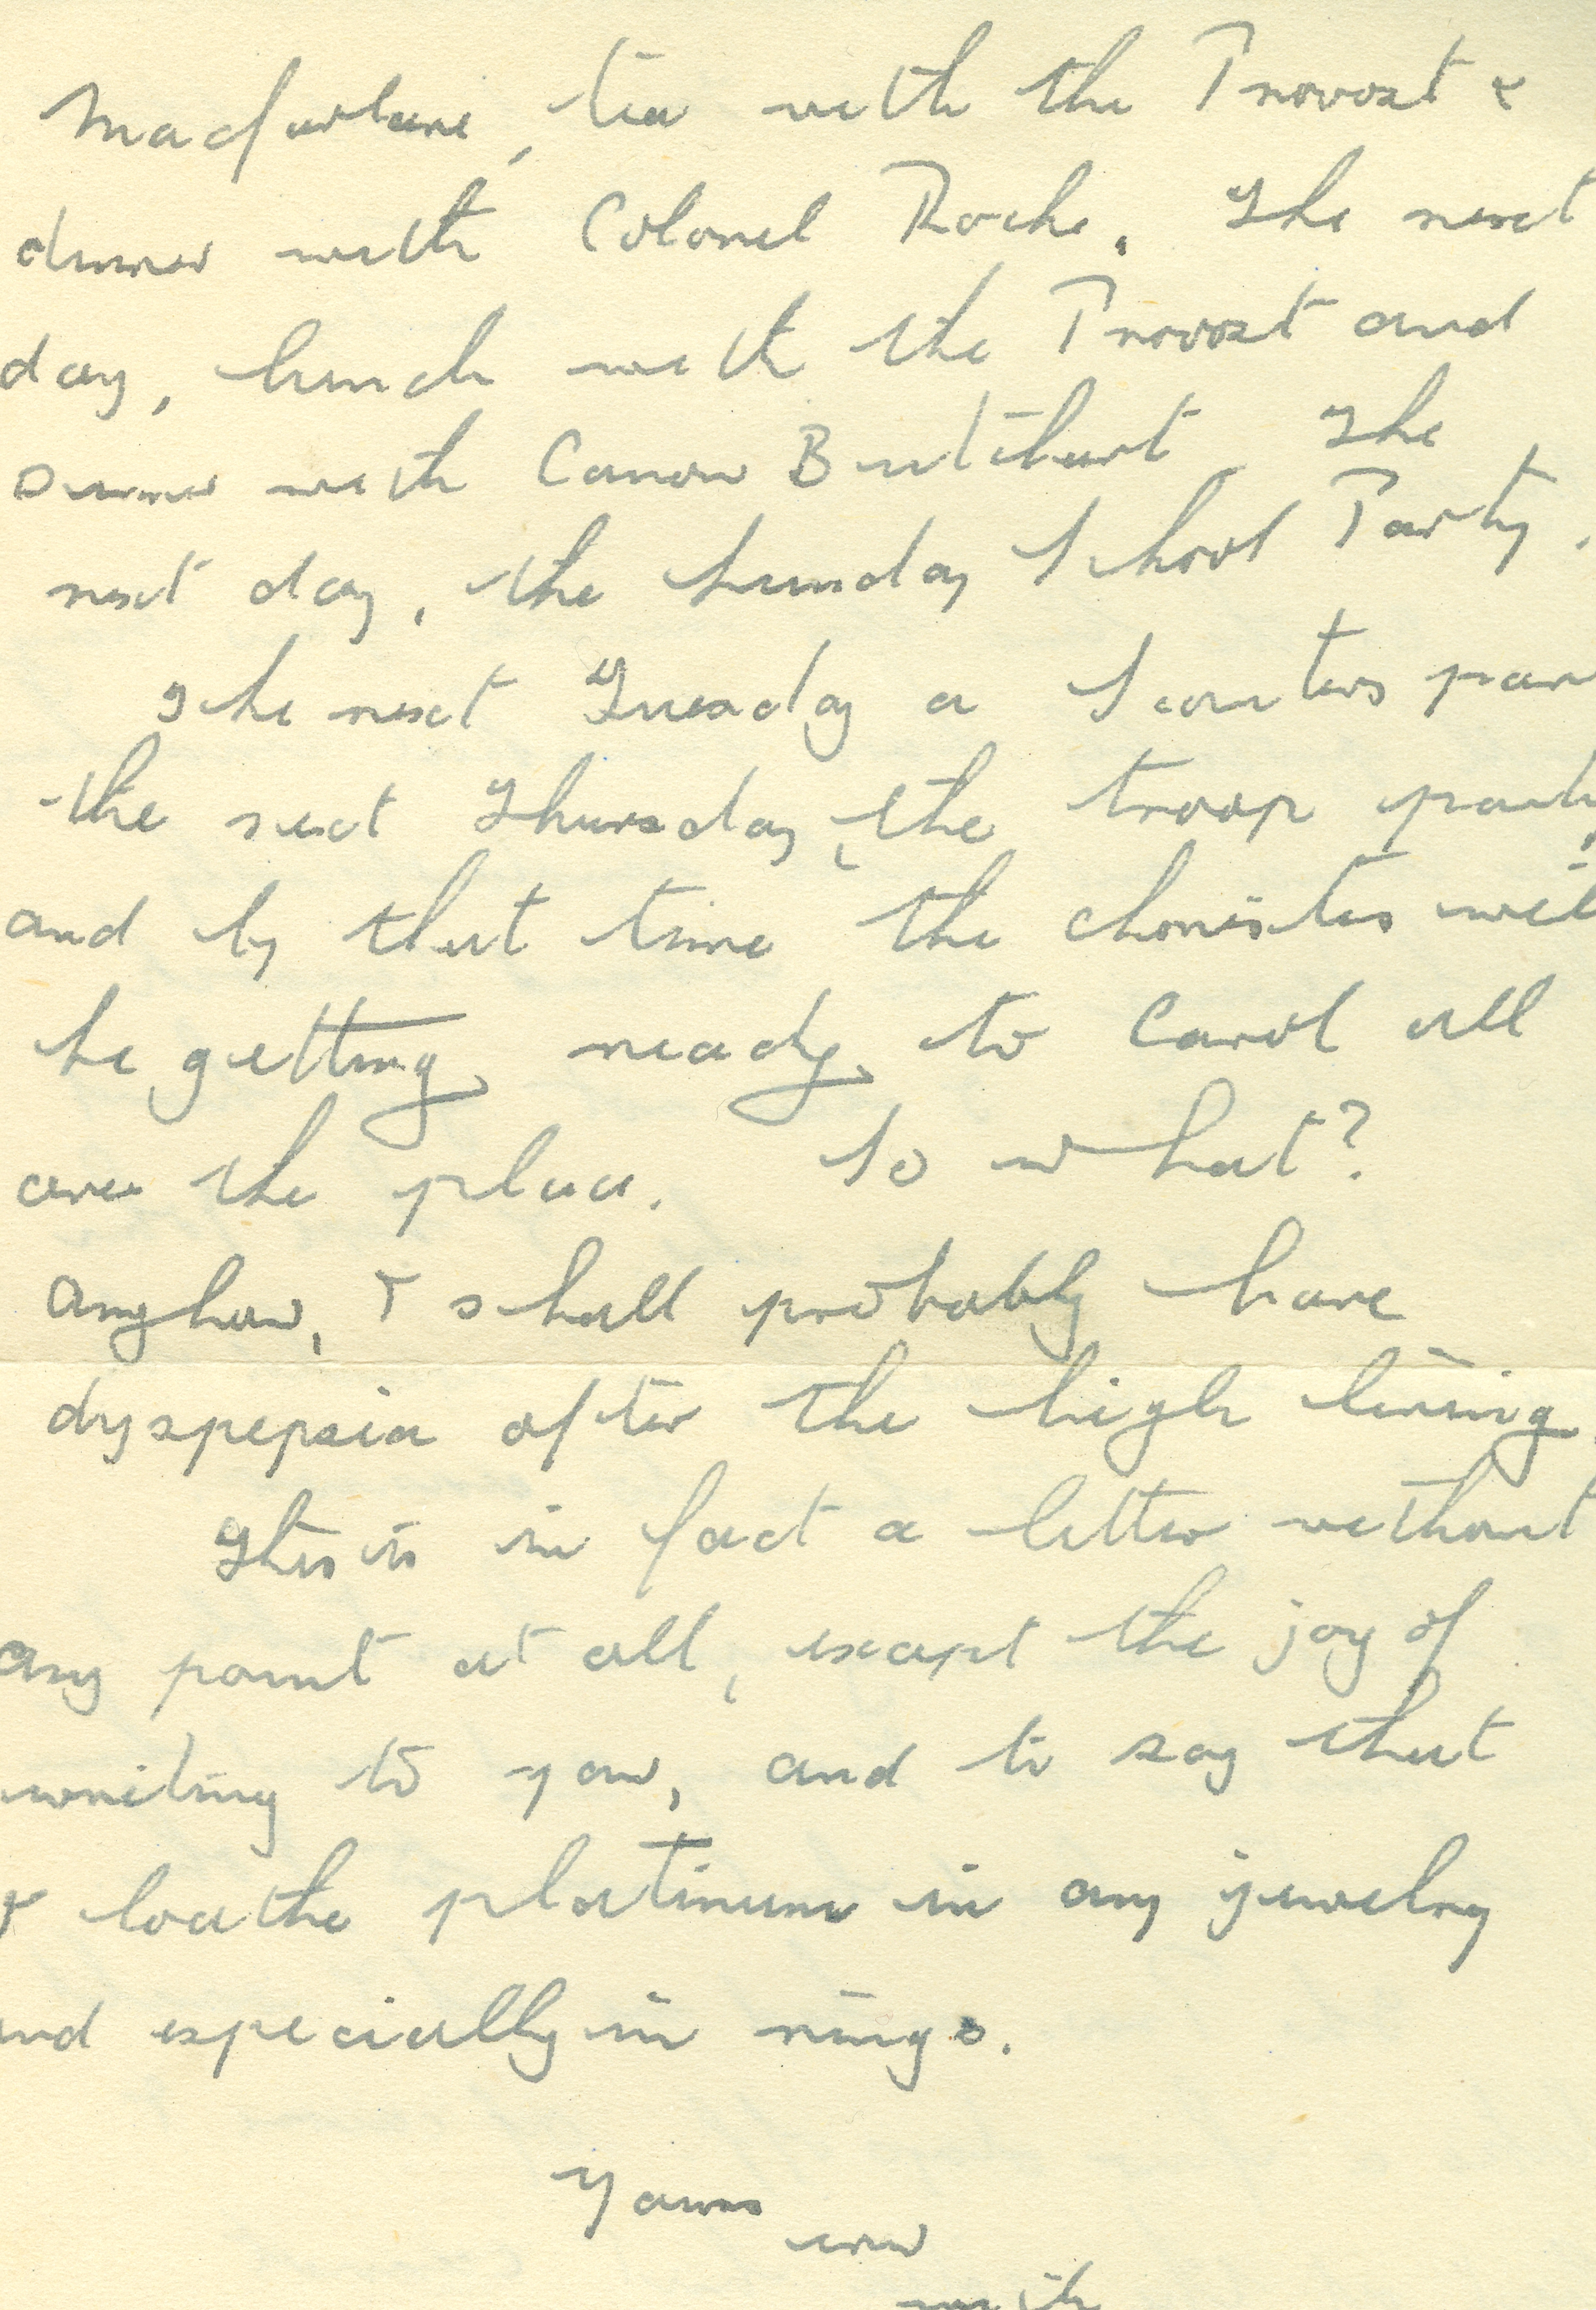 Macfarlane, tea with the Provost &
dinner with Colonel Roche. The next
day, lunch with the Provost and
Dinner with Canon The
next day, the Sunday School Party.
The next Tuesday a Scouters par
the next Thursday, the troop party,
and by that time the choristers will
be getting ready to Carol all
over the place. So what?
Anyhow, I shall probably have
dyspepsia after the high living.
This is in fact a letter without
any point at all, except the joy of
writing to you, and to say that
I loathe platinum in any jewelry
and especially in rings.
Yours
ever
with